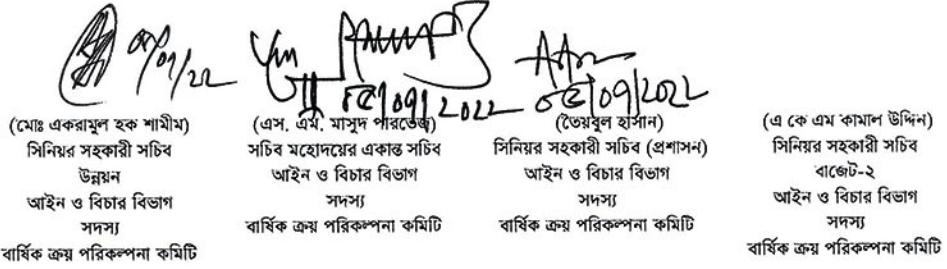 (মোঃ একরামুল হক শামীম)
সিনিয়র সহকারী সচিব
উন্নয়ন
আইন ও বিচার বিভাগ
সদস্য
বার্ষিক ক্রয় পরিকল্পনা কমিটি
(এস. এম. মাসুদ পারভেজ)
সচিব মহোদয়ের একান্ত সচিব
আইন ও বিচার বিভাগ
সদস্য
বার্ষিক ক্রয় পরিকল্পনা কমিটি
(তৈয়বুল হাসান)
সিনিয়র সহকারী সচিব (প্রশাসন)
আইন ও বিচার বিভাগ
সদস্য
বার্ষিক ক্রয় পরিকল্পনা কমিটি
(এ কে এম কামাল উদ্দিন)
সিনিয়র সহকারী সচিব
বাজেট-২
আইন ও বিচার বিভাগ
সদস্য
বার্ষিক ক্রয় পরিকল্পনা কমিটি